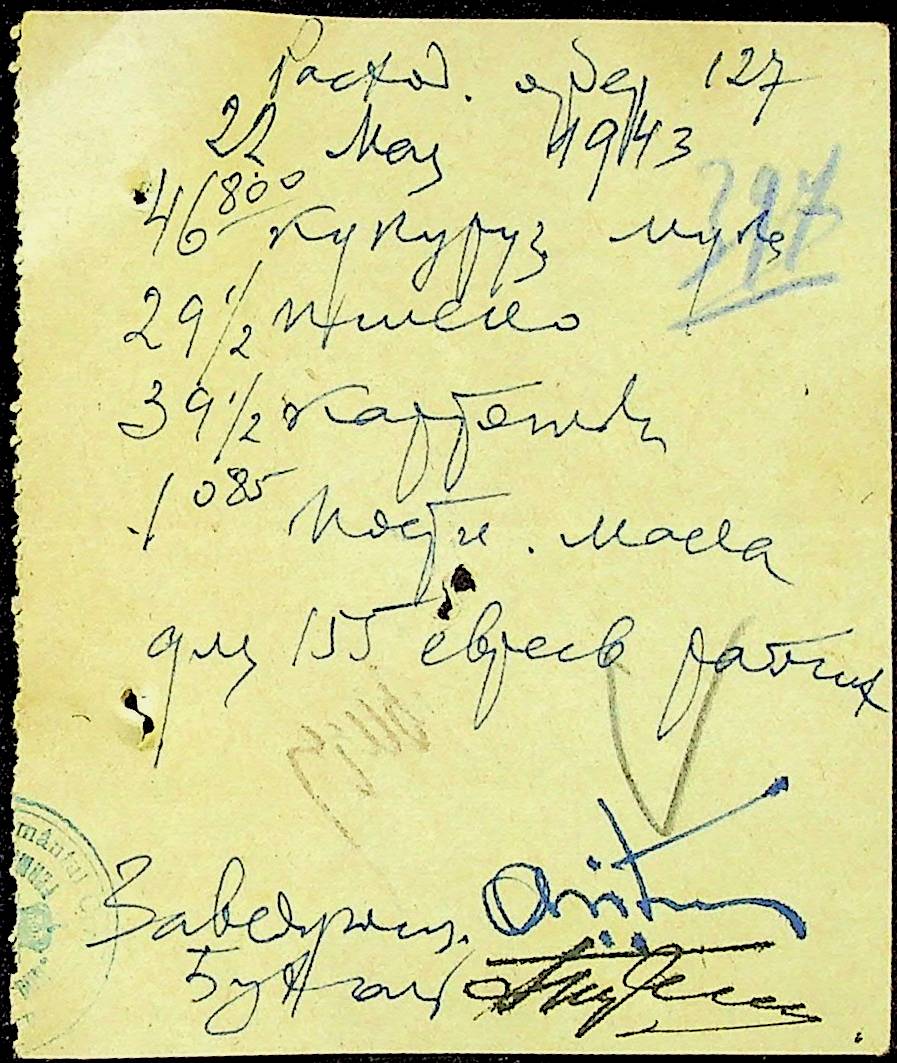 Расход. ордер 127
22 Мая 1943
297
46 800 кукуруз муки
29 1/2 пшено
39 1/2 картошки
1 085 постн. масла
для 155 евреев рабочих
Заведующ.
Бухгалт